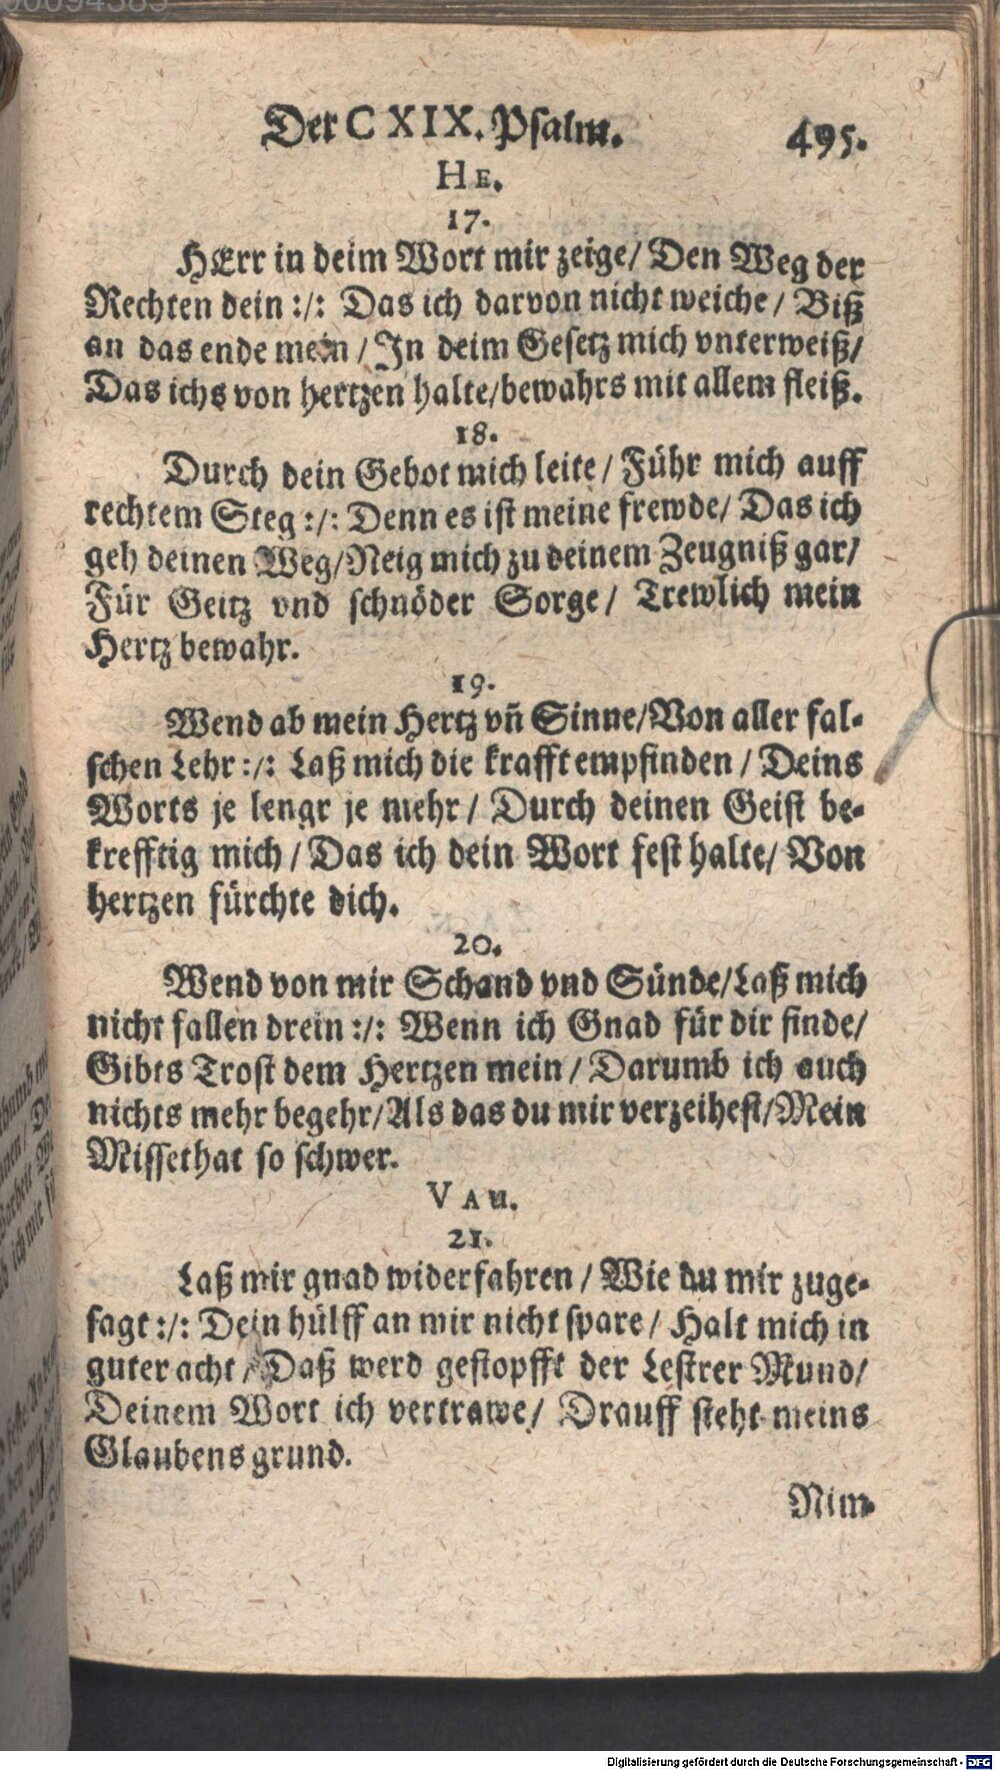 Der CXIX. Psalm. 495.
HE.
17.
HErr in deim Wort mir zeige/ Den Weg der
Rechten dein :/: Das ich darvon nicht weiche/ Biß
an das ende mein / In deim Gesetz mich vnterweiß/
Das ichs von hertzen halte/bewahrs mit allem fleiß.
18.
Durch dein Gebot mich leite/ Führ mich auff
rechtem Steg :/: Denn es ist meine frewde/ Das ich
geh deinen Weg/Neig mich zu deinem Zeugniß gar/
Für Geitz vnd schnöder Sorge/ Trewlich mein
Hertz bewahr.
19.
Wend ab mein Hertz vñ Sinne/Von aller fal-
schen Lehr :/: Laß mich die krafft empfinden / Deins
Worts je lengr je mehr/ Durch deinen Geist be-
krefftig mich / Das ich dein Wort fest halte/ Von
hertzen fürchte dich.
20.
Wend von mir Schand vnd Sünde/Laß mich
nicht fallen drein :/: Wenn ich Gnad für dir finde/
Gibts Trost dem Hertzen mein / Darumb ich auch
nichts mehr begehr/Als das du mir verzeihest/Mein
Missethat so schwer.
VAU.
21.
Laß mir gnad widerfahren / Wie du mir zuge-
sagt :/: Dein hülff an mir nicht spare/ Halt mich in
guter acht / Daß werd gestopfft der Lestrer Mund/
Deinem Wort ich vertrawe/ Drauff steht meins
Glaubens grund.
Nim
Digitalisierung gefördert durch die Deutsche Forschungsgemeinschaft - DFG